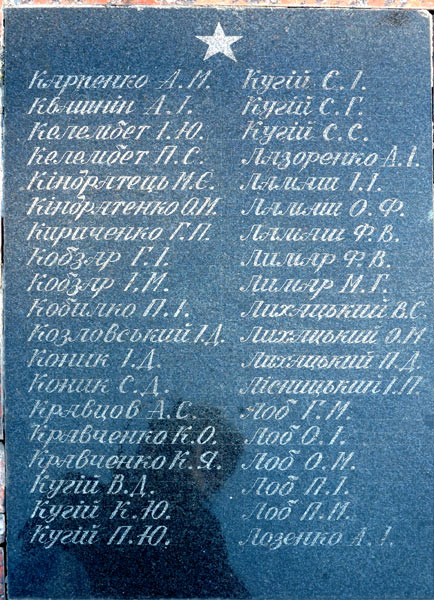 Карпенко А.М.
Квашнін А.І.
Келембет І.Ю.
Келембет П.С.
Кіндратець М.Є.
Кіндратенко О.М.
Кириченко Г.П.
Кобзар Г.І.
Кобзар І.М.
Кобилко П.І.
Козловський І.Д.
Коник І.Д.
Коник С.Д.
Кравцов А.С.
Кравченко К.О.
Кравченко К.Я.
Кугій В.Д.
Кугій К.Ю.
Кугій П.Ю.
Кугій С.І.
Кугій С.Г.
Кугій С.С.
Лазоренко А.І.
Ламаш І.І.
Ламаш О.Ф.
Ламаш Ф.В.
Лимар Ф.В.
Лимар М.Г.
Лихацький В.С.
Лихацький О.М.
Лихацький П.Д.
Лісницький І.П.
Лоб Г.М.
Лоб О.І.
Лоб О.М.
Лоб П.І.
Лоб П.М.
Лозенко А.І.